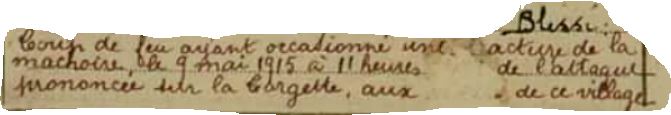 Blessé:
Coup de feu ayant occasionné une acture de la
machoire, le 9 mai 1915 à 11 heures de l'attaque
prononcée sur la Targette, aux de ce village